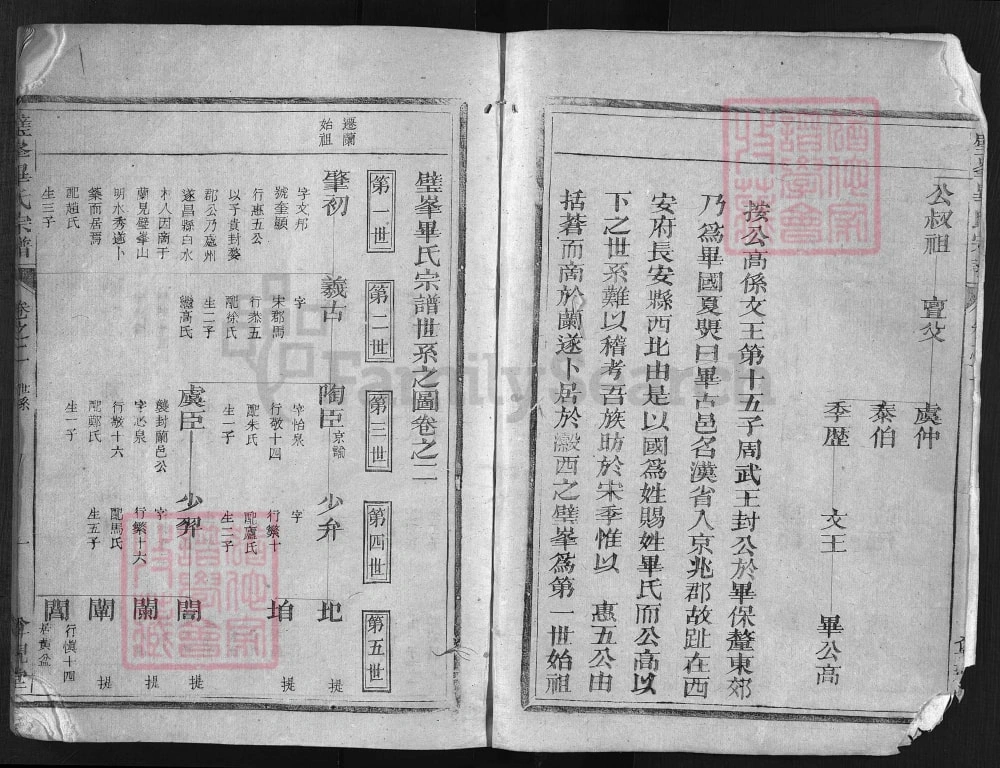 公叔祖
亶父
虞仲
泰伯
季歴
文王
畢公高
按公高係文王第十五子周武王封公於畢保釐東郊
乃爲畢國夏奭曰畢古邑名漢省入京兆郡故趾在西
安府長安縣西北由是以國爲姓賜姓畢氏而公高以
下之世系難以稽考吾族昉於宋季惟以 惠五公由
括蒼而啇於蘭遂卜居於瀫西之壁峯爲第一世始祖
璧峯畢氏宗譜世系之圖卷之二
第一世
第二世
第三世
第四世
第五世
遷蘭
始祖
肇初
字文邦
號奎顯
行惠五公
以子貴封婺
郡公乃處州
遂昌縣白水
人因啇于
蘭見璧峯山
明水秀遂卜
築而居焉
配趙氏
生三子
義古
字
宋郡馬
行恭五
配徐氏
生二子
繼高氏
陶臣
京諭
字怡泉
行敬十四
配朱氏
生一子
虞臣
襲封蘭邑公
字泌泉
行敬十六
配鄭氏
生一子
少弁
字
行繁十
配盧氏
生二子
少羿
字
行繁十六
配馬氏
生五子
地
提
垍
提
誾
提
蘭
提
闈
提
行慎十四
璧峯畢氏宗譜
卷之二
世系
一
FamilySearch